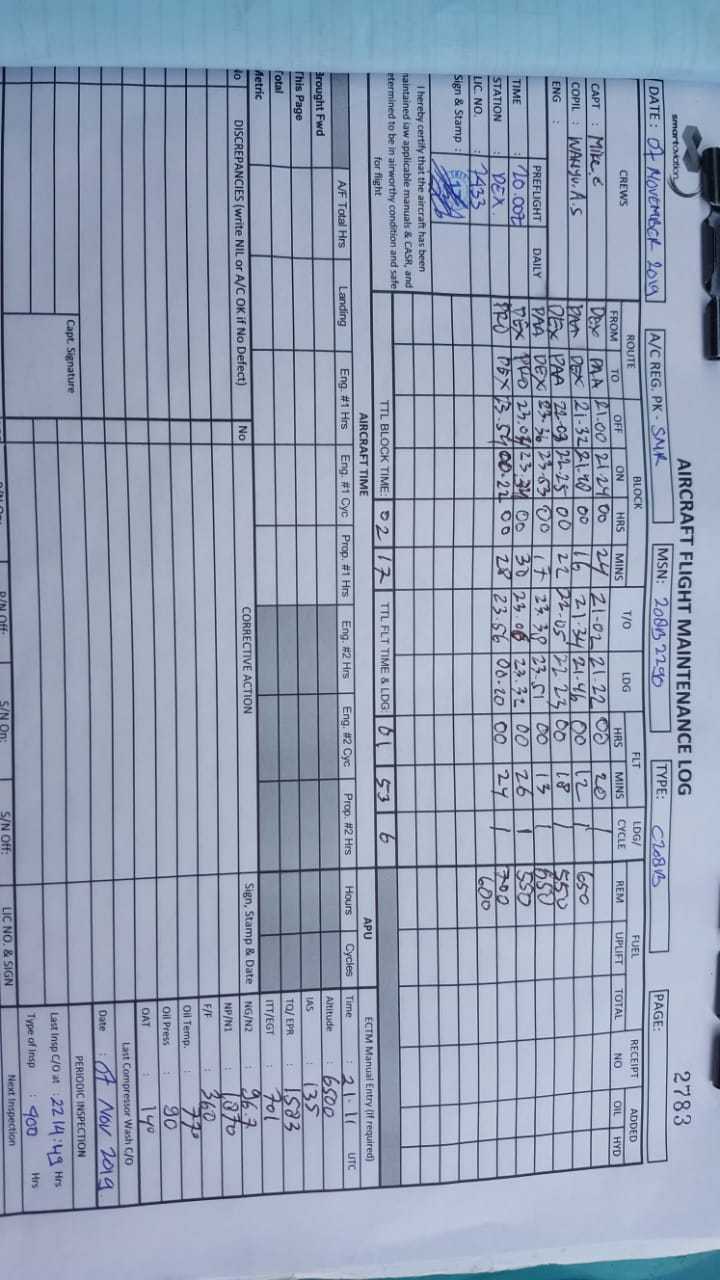 smart aviation
AIRCRAFT FLIGHT MAINTENANCE LOG 2783
DATE : 07 NOVEMBER 2019 A/C REG. PK - SNR MSN: 208B2290 TYPE: C208B PAGE:
CREWS ROUTE BLOCK T/O LDG FLT LDG/ CYCLE FUEL RECEIPT NO ADDED
FROM TO OFF ON HRS MINS HRS MINS REM UPLIFT TOTAL OIL HYD
CAPT : Mike. DEX PAA 21.00 21.24 00 24 21.02 21.22 00 20 1
COPIL : WAHYU.A.S PAA DEX 21.32 21.48 00 16 21.34 21.46 00 12 1 650
ENG : DEX PAA 22.03 22.25 00 22 22.05 22.23 00 18 1 550
PREFLIGHT DAILY PAA DEX 23.36 23.53 00 17 23.38 23.51 00 13 1 550
TIME : 20.00Z DEX 23.04 23.34 00 30 23.06 23.32 00 26 1 550
STATION : DEX. DEX 23.54 00.22 00 28 23.56 00.20 00 24 1 700
LIC. NO. : 7433 600
Sign & Stamp :
I hereby certify that the aircraft has been
maintained iaw applicable manuals & CASR, and
determined to be in airworthy condition and safe
for flight
TTL BLOCK TIME: 02 17 TTL FLT TIME & LDG: 01 53 6
AIRCRAFT TIME APU ECTM Manual Entry (If required)
A/F Total Hrs Landing Eng. #1 Hrs Eng. #1 Cyc Prop. #1 Hrs Eng. #2 Hrs Eng. #2 Cyc Prop. #2 Hrs Hours Cycles Time : 21.11 UTC
Brought Fwd Altitude : 6500
This Page IAS : 135
Total TQ/ EPR : 1583
Metric ITT/EGT : 701
No DISCREPANCIES (write NIL or A/C OK if No Defect) No CORRECTIVE ACTION Sign, Stamp & Date NG/N2 : 96.7
NP/N1 : 1870
F/F : 360
Oil Temp. : 77°
Oil Press : 90
OAT : 14°
Last Compressor Wash C/O
Date : 07 Nov 2019
PERIODIC INSPECTION
Capt. Signature Last Insp C/O at : 2214:49 Hrs
Type of Insp : 400 Hrs
P/N Off: S/N On: S/N Off: LIC NO. & SIGN Next Inspection